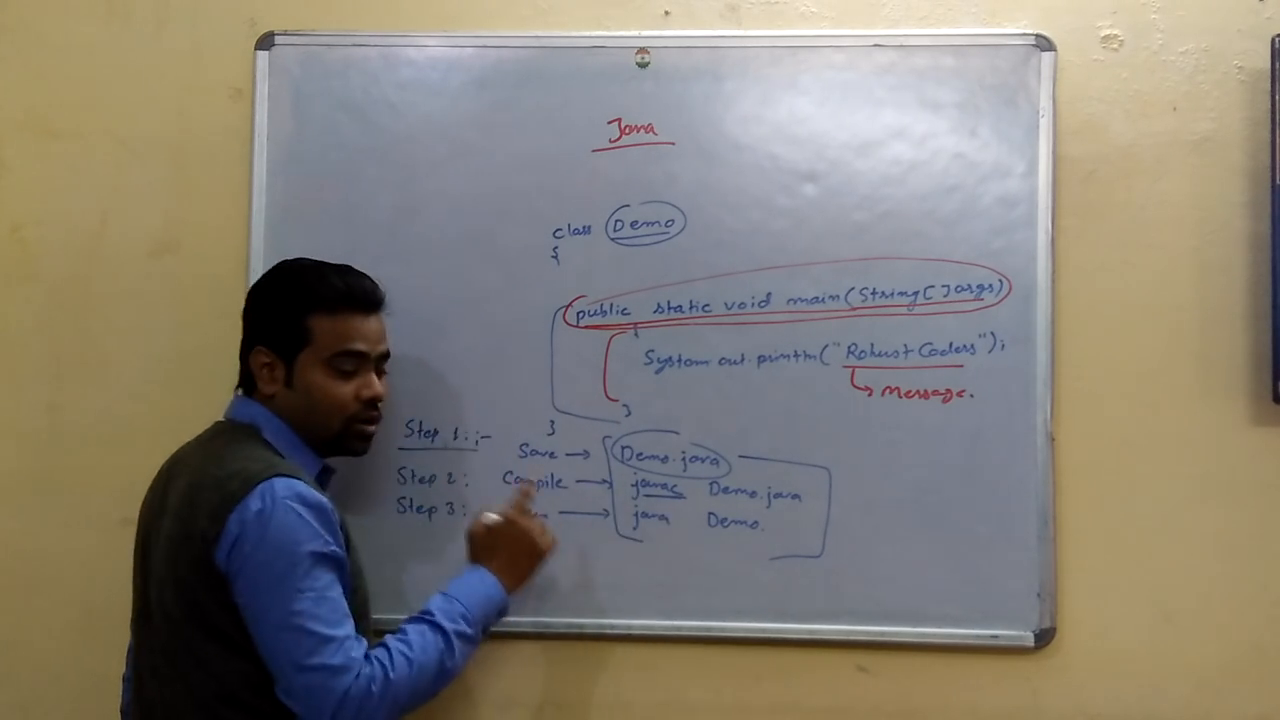 Java
class Demo
{
public static void main(String[]args)
{
System.out.println("Robust Coders");
Message.
}
}
Step 1:;-
Save → Demo.java
Step 2: Compile → javac Demo.java
Step 3: → java Demo.